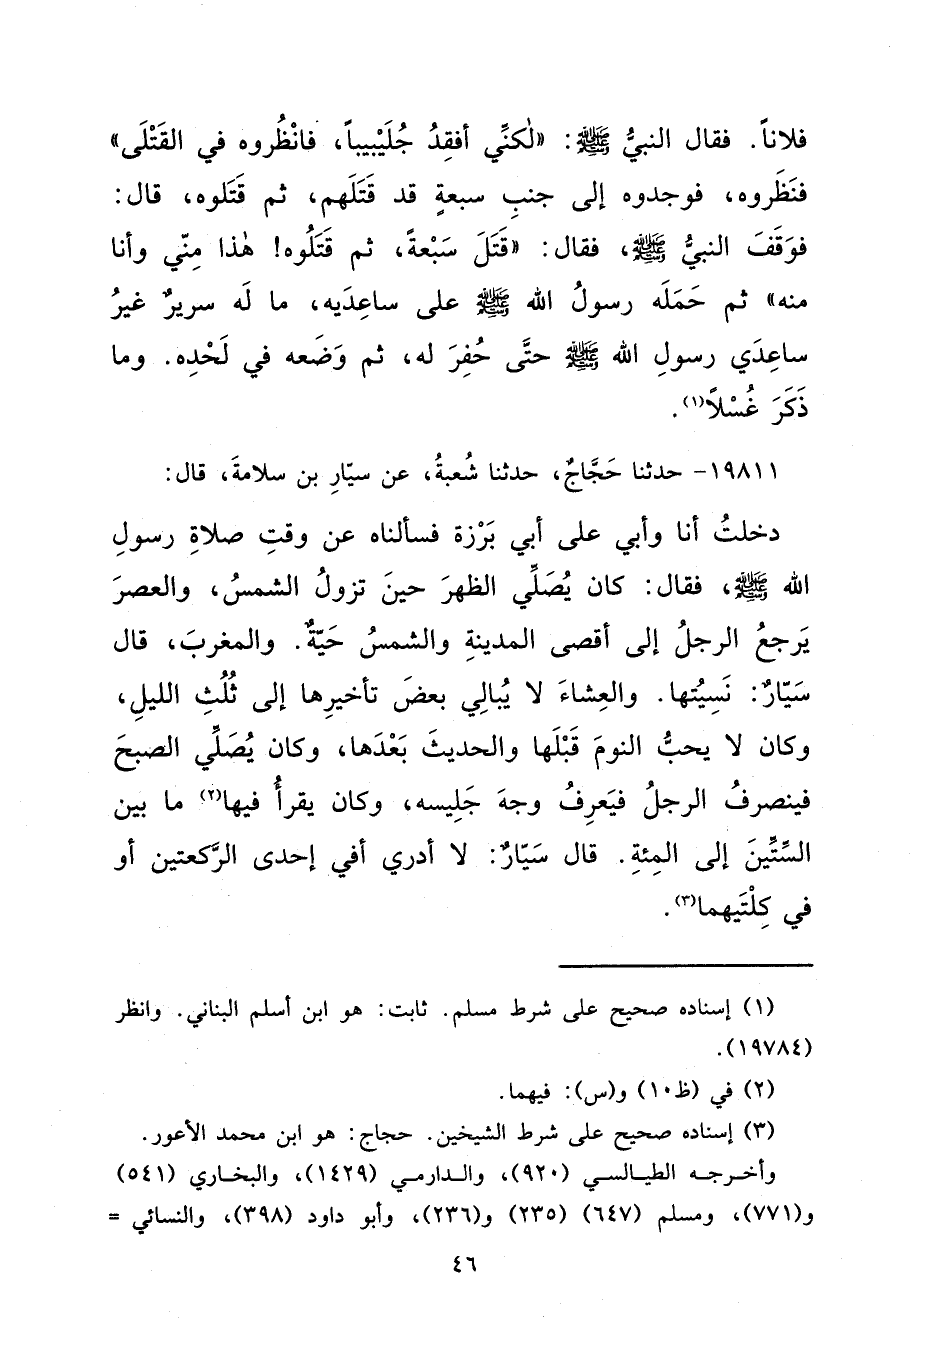 فلاناً. فقال النبيُّ ﷺ: «لٰكنِّي أفقِدُ جُلَيْبيباً، فانْظُروه في القَتْلَى»
فنَظَروه، فوجدوه إلى جنبِ سبعةٍ قد قَتَلَهم، ثم قَتَلوه، قال:
فوَقَفَ النبيُّ ﷺ، فقال: «قَتَلَ سَبْعةً، ثم قَتَلُوه! هٰذا مِنّي وأنا
منه» ثم حَمَلَه رسولُ الله ﷺ على ساعِدَيه، ما لَه سريرٌ غيرُ
ساعِدَي رسولِ الله ﷺ حتَّى حُفِرَ له، ثم وَضَعه في لَحْدِه. وما
ذَكَرَ غُسْلاً(١).
١٩٨١١- حدثنا حَجَّاجٌ، حدثنا شُعبةُ، عن سيّارِ بن سلامةَ، قال:
دخلتُ أنا وأبي على أبي بَرْزة فسألناه عن وقتِ صلاةِ رسولِ
الله ﷺ، فقال: كان يُصَلِّي الظهرَ حينَ تزولُ الشمسُ، والعصرَ
يَرجعُ الرجلُ إلى أقصى المدينةِ والشمسُ حَيّةٌ. والمغربَ، قال
سَيّارٌ: نَسِيُتها. والعِشاءَ لا يُبالِي بعضَ تأخيرِها إلى ثُلُثِ الليلِ،
وكان لا يحبُّ النومَ قَبْلَها والحديثَ بَعْدَها، وكان يُصَلِّي الصبحَ
فينصرفُ الرجلُ فيَعرِفُ وجهَ جَلِيسه، وكان يقرأُ فيها(٢) ما بين
السِّتِّينَ إلى المِئةِ. قال سَيّارٌ: لا أدري أفي إحدى الرَّكعتين أو
في كِلْتَيهما(٣).
(١) إسناده صحيح على شرط مسلم. ثابت: هو ابن أسلم البناني. وانظر
(١٩٧٨٤).
(٢) في (ظ١٠) و(س): فيهما.
(٣) إسناده صحيح على شرط الشيخين. حجاج: هو ابن محمد الأعور.
وأخرجه الطيالسي (٩٢٠)، والدارمي (١٤٢٩)، والبخاري (٥٤١)
و(٧٧١)، ومسلم (٦٤٧) (٢٣٥) و(٢٣٦)، وأبو داود (٣٩٨)، والنسائي =
٤٦